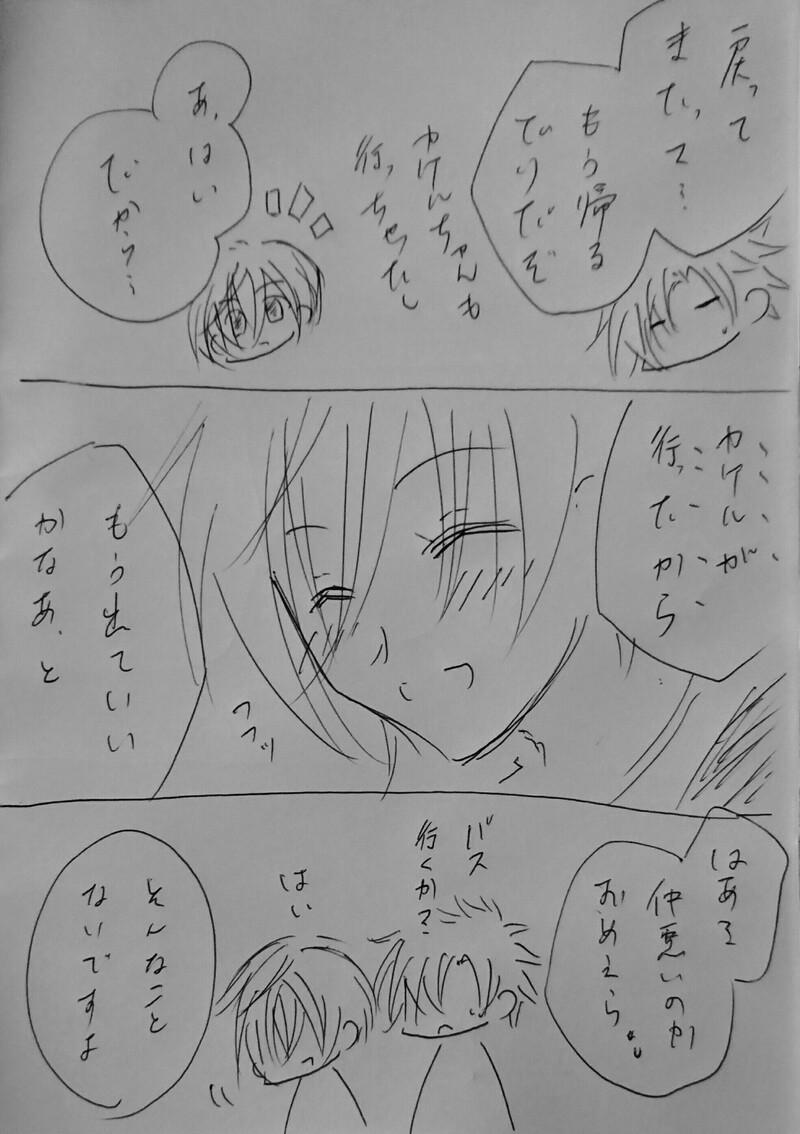 戻って
またって…
もう帰る
でりだぞ
かけんちゃんも
行っちゃたし
あ、はい
だから…
かけんが
行ったから
もう出ていい
かなあ、と
フフッ
はあ?
仲悪いのか
おめえら
バス
行くか?
はい
そんなこと
ないですよ